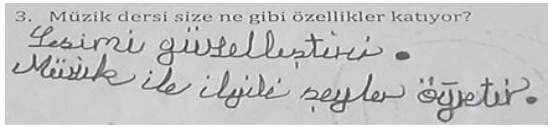 3. Müzik dersi size ne gibi özellikler katıyor?
Sesimi güzelleştirir.
Müzik ile ilgili şeyler öğretir.